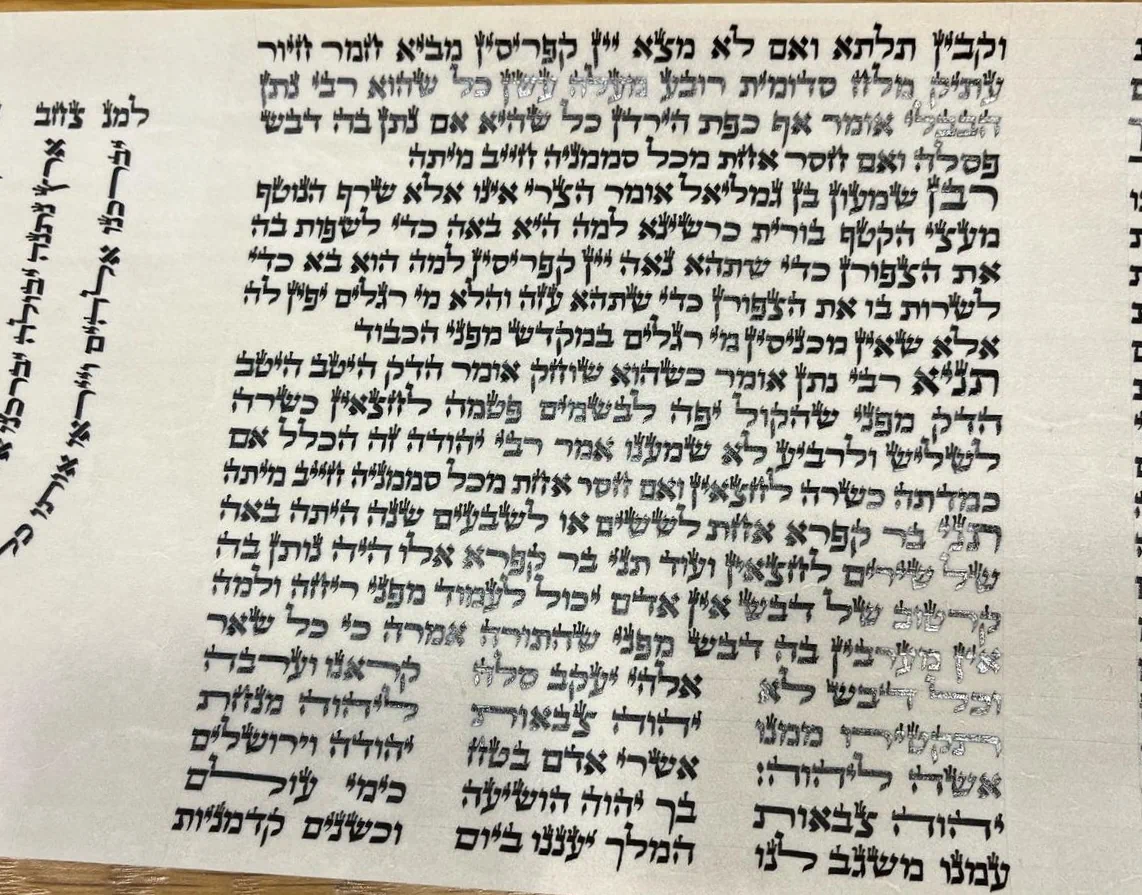 וקבין תלתא ואם לא מצא יין קפריסין מביא חמר חיור
עתיק מלח סדומית רובע מעלה עשן כל שהוא רבי נתן
הבבלי אומר אף כפת הירדן כל שהיא אם נתן בה דבש
פסלה ואם חסר אחת מכל סממניה חייב מיתה
רבן שמעון בן גמליאל אומר הצרי אינו אלא שרף הנוטף
מעצי הקטף בורית כרשינא למה היא באה כדי לשפות בה
את הצפורן כדי שתהא נאה יין קפריסין למה הוא בא כדי
לשרות בו את הצפורן כדי שתהא עזה והלא מי רגלים יפין לה
אלא שאין מכניסין מי רגלים במקדש מפני הכבוד
תניא רבי נתן אומר כשהוא שוחק אומר הדק היטב היטב
הדק מפני שהקול יפה לבשמים פטמה לחצאין כשרה
לשליש ולרביע לא שמענו אמר רבי יהודה זה הכלל אם
כמדתה כשרה לחצאין ואם חסר אחת מכל סממניה חייב מיתה
תני בר קפרא אחת לששים או לשבעים שנה היתה באה
של שירים לחצאין ועוד תני בר קפרא אלו היה נותן בה
קרטוב של דבש אין אדם יכול לעמוד מפני ריחה ולמה
אין מערבין בה דבש מפני שהתורה אמרה כי כל שאר
וכל דבש לא אלהי יעקב סלה קראנו וערבה
תקטירו ממנו יהוה צבאות ליהוה מנחת
אשה ליהוה: אשרי אדם בטח יהודה וירושלים
יהוה צבאות בך יהוה הושיעה כימי עולם
עמנו משגב לנו המלך יעננו ביום וכשנים קדמניות
למנצח ב
יברכנו אלהים וייראו אותו כל
ארץ נתנה יבולה יברכנו א